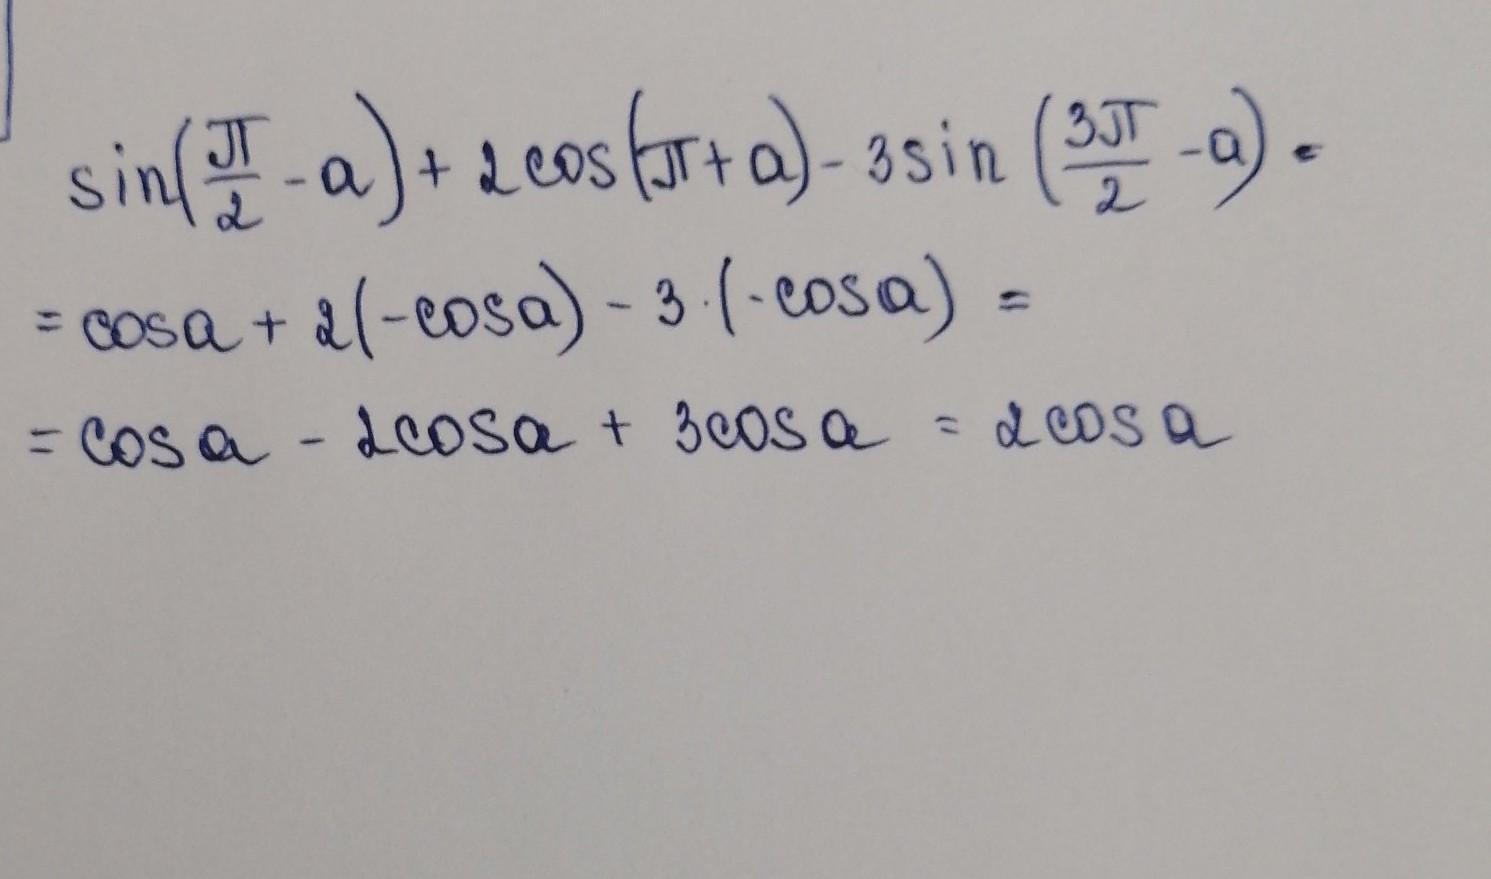 sin(π/2 - a) + 2cos(π + a) - 3sin (3π/2 - a) =
= cosa + 2(-cosa) - 3·(-cosa) =
= cosa - 2cosa + 3cosa = 2cosa